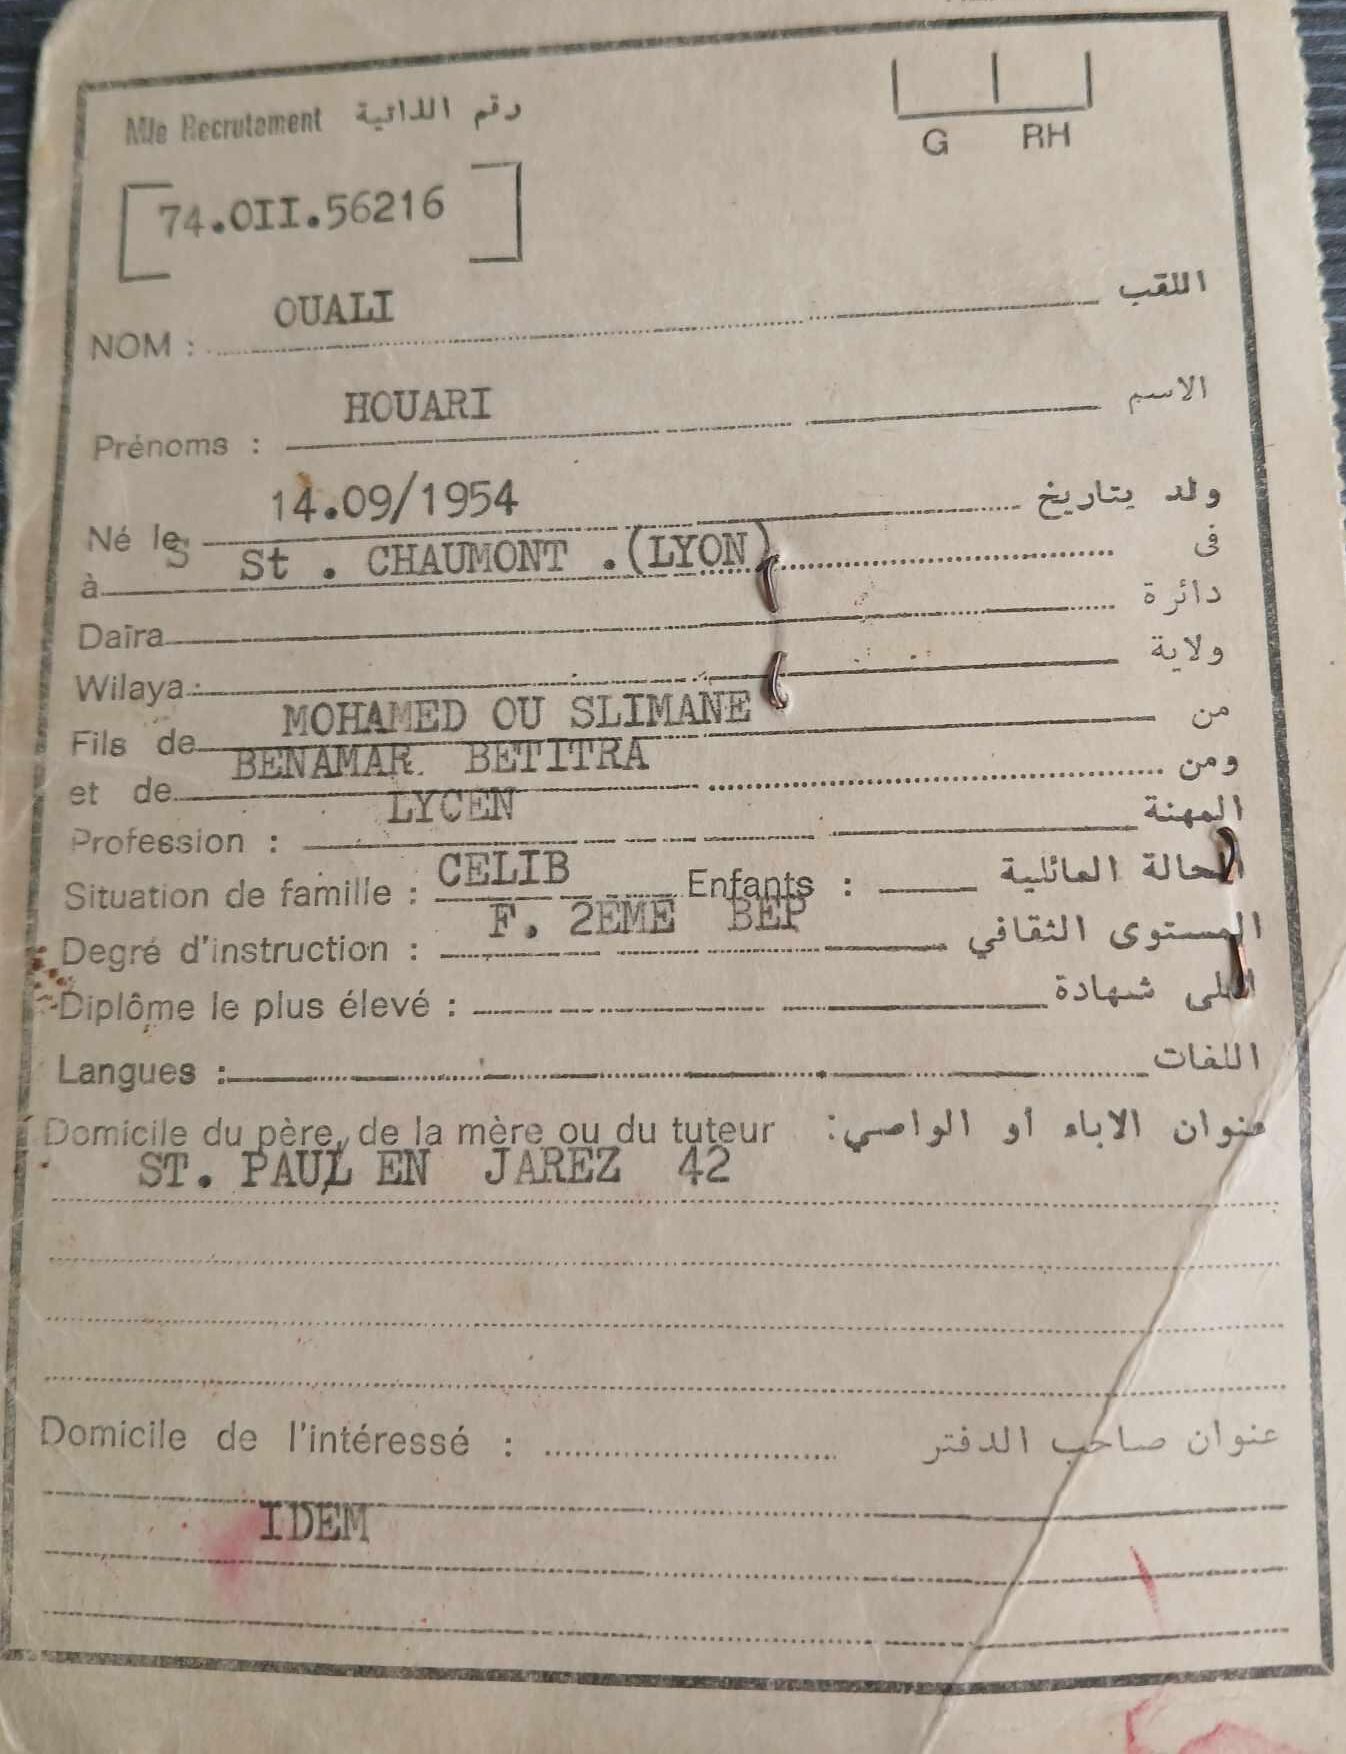 Mle Recrutement رقم الذاتية
G RH
74.0II.56216
NOM : OUALI اللقب
Prénoms : HOUARI الاسم
Né le 14.09/1954 ولد بتاريخ
à S St . CHAUMONT .(LYON) فى
Daïra دائرة
Wilaya : ولاية
Fils de MOHAMED OU SLIMANE من
et de BENAMAR. BETITRA ومن
Profession : LYCEN المهنة
Situation de famille : CELIB Enfants : الحالة العائلية
Degré d'instruction : F. 2EME BEP المستوى الثقافي
Diplôme le plus élevé : اعلى شهادة
Langues : اللغات
Domicile du père, de la mère ou du tuteur عنوان الاباء أو الواصي:
ST. PAUL EN JAREZ 42
Domicile de l'intéressé : عنوان صاحب الدفتر
IDEM